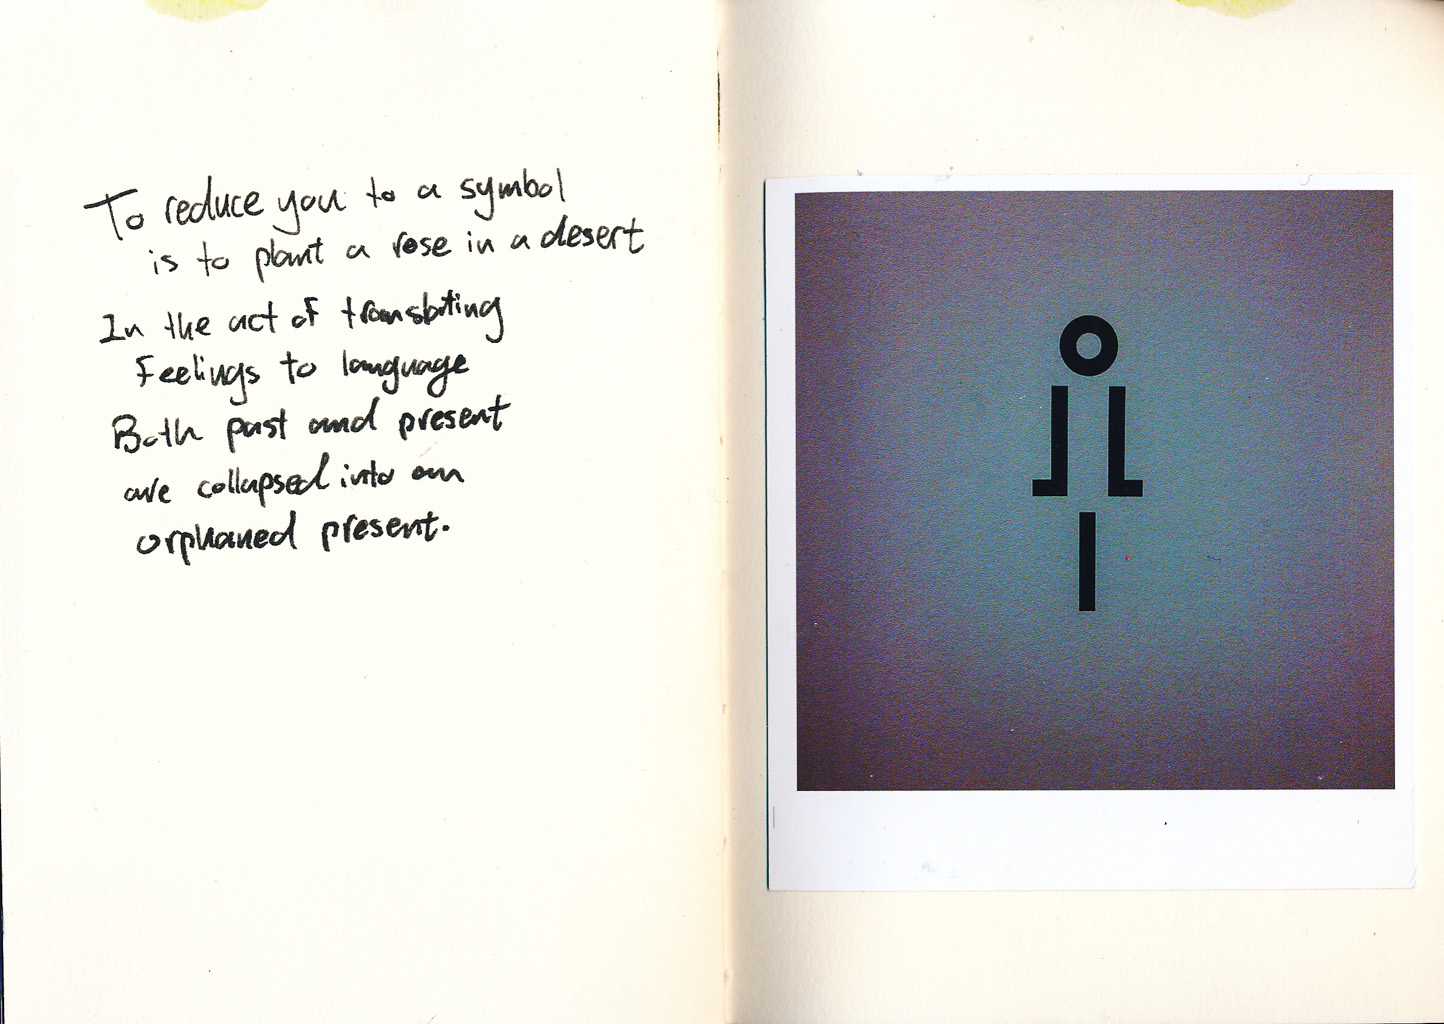 To reduce you to a symbol
is to plant a rose in a desert
In the act of translating
Feelings to language
Both past and present
are collapsed into an
orphaned present.